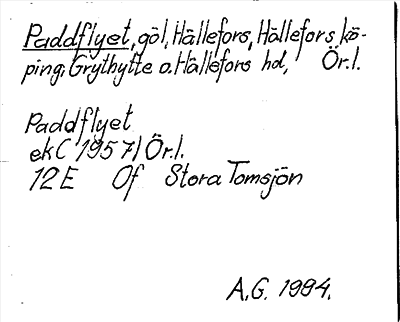 Paddflyet, göl, Hällefors, Hällefors kö-
ping, Grythytte o. Hällefors hd, Ör.l.
Paddflyet
ekC 1957/Ör.l.
12E Of Stora Tomsjön
A.G. 1984.